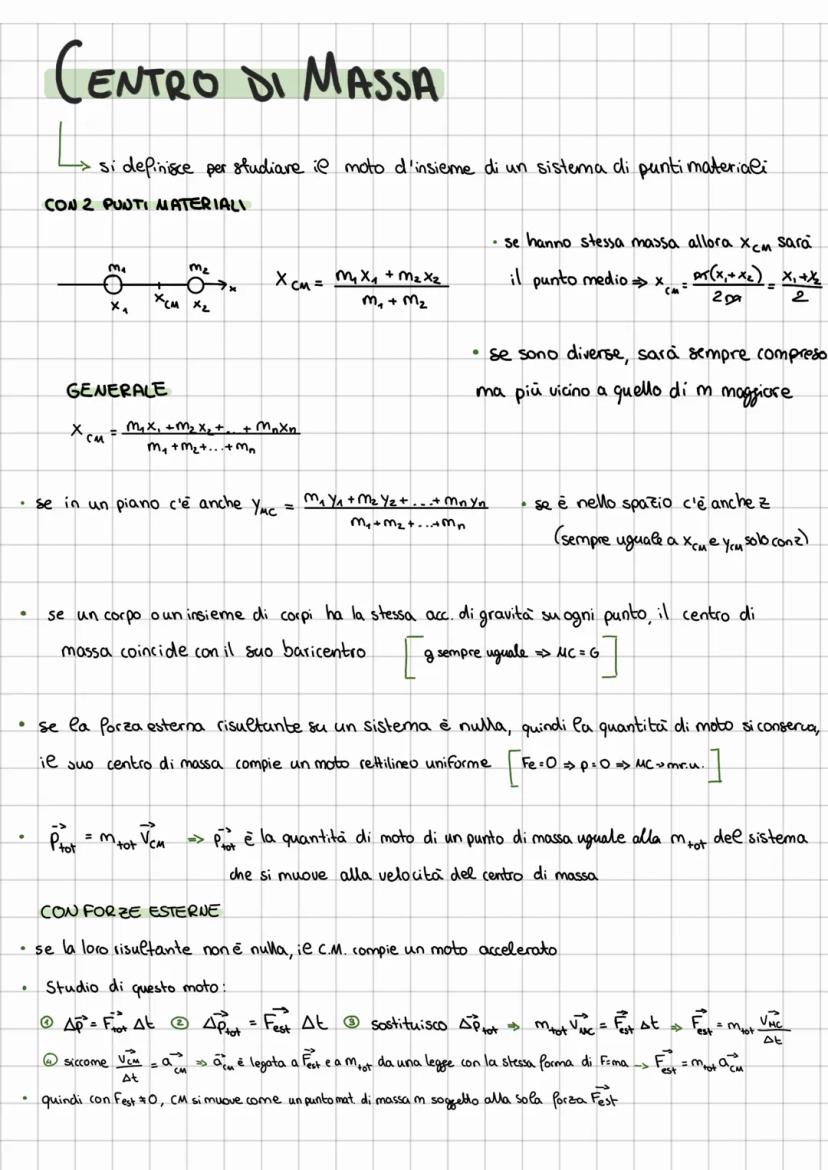 CENTRO DI MASSA
si definisce per studiare il moto d'insieme di un sistema di punti materiali
CON 2 PUNTI MATERIALI
m₁ m₂
x
x₁ x_CM x₂
X_CM = (m₁x₁ + m₂x₂) / (m₁ + m₂)
• se hanno stessa massa allora x_CM sarà
il punto medio ⇒ x_CM = m(x₁+x₂) / 2m = (x₁+x₂) / 2
• se sono diverse, sarà sempre compreso
ma più vicino a quello di m maggiore
GENERALE
X_CM = (m₁x₁ + m₂x₂ + ... + mₙxₙ) / (m₁ + m₂ + ... + mₙ)
• se in un piano c'è anche y_MC = (m₁y₁ + m₂y₂ + ... + mₙyₙ) / (m₁ + m₂ + ... + mₙ)
• se è nello spazio c'è anche z
(sempre uguale a x_CM e y_CM solo con z)
• se un corpo o un insieme di corpi ha la stessa acc. di gravità su ogni punto, il centro di
massa coincide con il suo baricentro [g sempre uguale ⇒ MC = G]
• se la forza esterna risultante su un sistema è nulla, quindi la quantità di moto si conserva,
il suo centro di massa compie un moto rettilineo uniforme [Fe=0 ⇒ p=0 ⇒ MC → m.r.u.]
• p⃗_tot = m_tot v⃗_CM ⇒ p⃗_tot è la quantità di moto di un punto di massa uguale alla m_tot del sistema
che si muove alla velocità del centro di massa
CON FORZE ESTERNE
• se la loro risultante non è nulla, il C.M. compie un moto accelerato
• Studio di questo moto:
① Δp⃗ = F⃗_tot Δt ② Δp⃗_tot = F⃗_est Δt ③ sostituisco Δp⃗_tot ⇒ m_tot v⃗_MC = F⃗_est Δt ⇒ F⃗_est = m_tot v⃗_MC / Δt
④ siccome v⃗_CM / Δt = a⃗_CM ⇒ a⃗_CM è legata a F⃗_est e a m_tot da una legge con la stessa forma di F=ma → F⃗_est = m_tot a⃗_CM
• quindi con F_est ≠ 0, CM si muove come un punto mat. di massa m soggetto alla sola forza F⃗_est